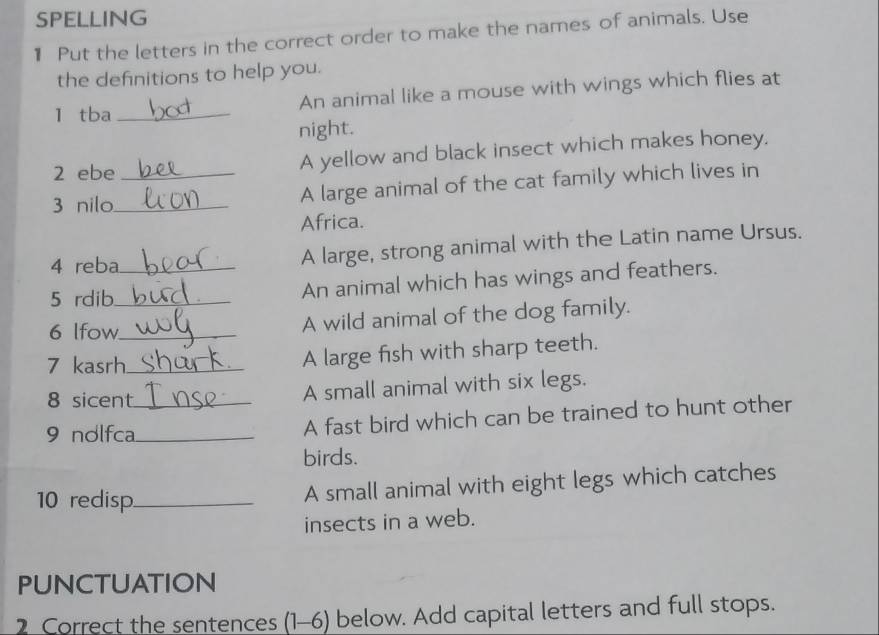 SPELLING
1 Put the letters in the correct order to make the names of animals. Use
the definitions to help you.
1 tba bat An animal like a mouse with wings which flies at
night.
2 ebe bee A yellow and black insect which makes honey.
3 nilo lion A large animal of the cat family which lives in
Africa.
4 reba bear. A large, strong animal with the Latin name Ursus.
5 rdib bird. An animal which has wings and feathers.
6 lfow wolf A wild animal of the dog family.
7 kasrh shark. A large fish with sharp teeth.
8 sicent Inse A small animal with six legs.
9 nolfca A fast bird which can be trained to hunt other
birds.
10 redisp A small animal with eight legs which catches
insects in a web.
PUNCTUATION
2 Correct the sentences (1–6) below. Add capital letters and full stops.